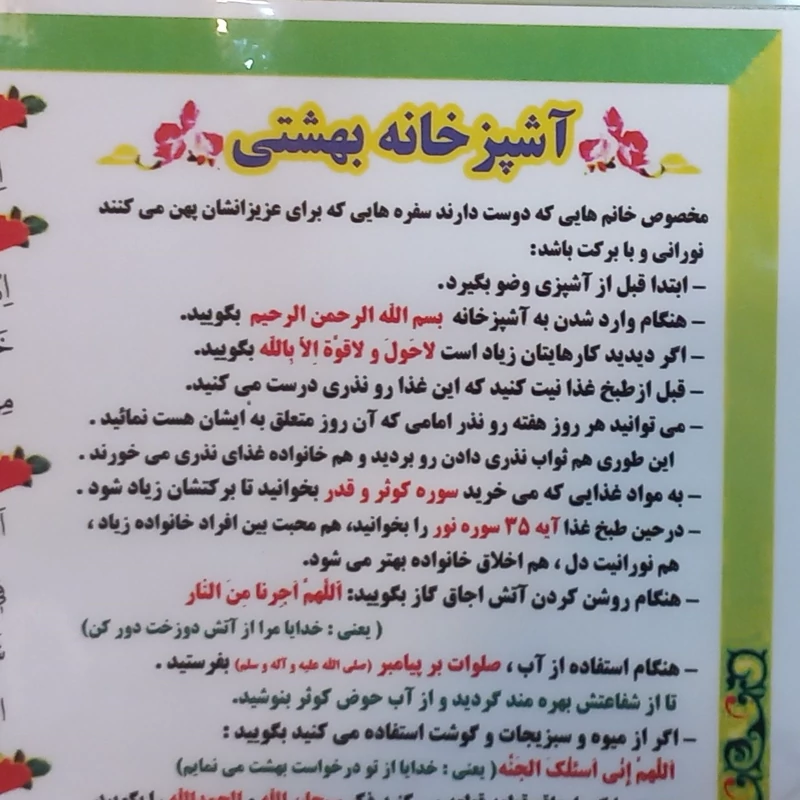 آشپزخانه بهشتی
مخصوص خانم هایی که دوست دارند سفره هایی که برای عزیزانشان پهن می کنند
نورانی و با برکت باشد:
– ابتدا قبل از آشپزی وضو بگیرد.
– هنگام وارد شدن به آشپزخانه بسم الله الرحمن الرحیم بگویید.
– اگر دیدید کارهایتان زیاد است لاحَولَ و لاقوَّة اِلاّ بِاللّه بگویید.
– قبل ازطبخ غذا نیت کنید که این غذا رو نذری درست می کنید.
– می توانید هر روز هفته رو نذر امامی که آن روز متعلق به ایشان هست نمائید .
این طوری هم ثواب نذری دادن رو بردید و هم خانواده غذای نذری می خورند .
– به مواد غذایی که می خرید سوره کوثر و قدر بخوانید تا برکتشان زیاد شود .
– درحین طبخ غذا آیه ۳۵ سوره نور را بخوانید، هم محبت بین افراد خانواده زیاد ،
هم نورانیت دل ، هم اخلاق خانواده بهتر می شود.
– هنگام روشن کردن آتش اجاق گاز بگویید: اَللّهمَّ اَجِرنا مِنَ النّار
( یعنی : خدایا مرا از آتش دوزخت دور کن)
– هنگام استفاده از آب ، صلوات بر پیامبر (صلی الله علیه و آله و سلم) بفرستید .
تا از شفاعتش بهره مند گردید و از آب حوض کوثر بنوشید.
– اگر از میوه و سبزیجات و گوشت استفاده می کنید بگویید :
اَللّهمَّ اِنّی اَسئَلُکَ الجَنَّه ( یعنی : خدایا از تو درخواست بهشت می نمایم)